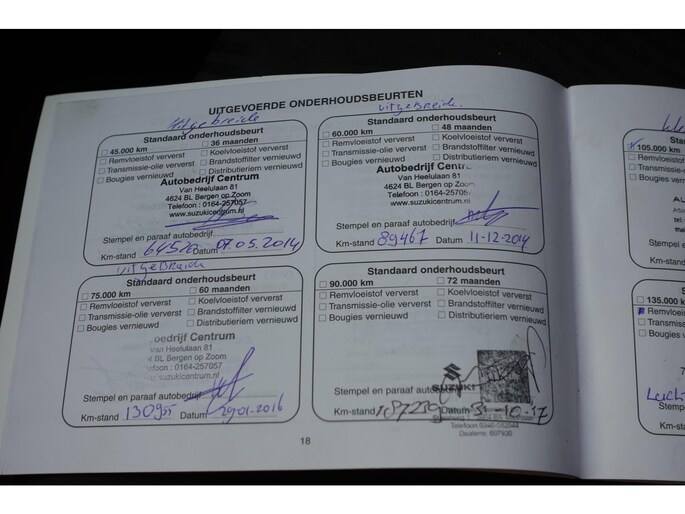 UITGEVOERDE ONDERHOUDSBEURTEN
Uitgebreide
Standaard onderhoudsbeurt
45.000 km 36 maanden
Remvloeistof ververst Koelvloeistof ververst
Transmissie-olie ververst Brandstoffilter vernieuwd
Bougies vernieuwd Distributieriem vernieuwd
Autobedrijf Centrum
Van Heelulaan 81
4624 BL Bergen op Zoom
Telefoon : 0164-257057
www.suzukicentrum.nl
Stempel en paraaf autobedrijf
Km-stand Datum 07.05.2014
uitgebreide.
Standaard onderhoudsbeurt
60.000 km 48 maanden
Remvloeistof ververst Koelvloeistof ververst
Transmissie-olie ververst Brandstoffilter vernieuwd
Bougies vernieuwd Distributieriem vernieuwd
Autobedrijf Centrum
Van Heelulaan 81
4624 BL Bergen op Zoom
Telefoon : 0164-257057
www.suzukicentrum.nl
Stempel en paraaf autobedrijf
Km-stand 89467 Datum 11-12-2014
uitgebreide
Standaard onderhoudsbeurt
75.000 km 60 maanden
Remvloeistof ververst Koelvloeistof ververst
Transmissie-olie ververst Brandstoffilter vernieuwd
Bougies vernieuwd Distributieriem vernieuwd
bedrijf Centrum
Van Heelulaan 81
4 BL Bergen op Zoom
efoon : 0164-257057
w.suzukicentrum.nl
Stempel en paraaf autobedrijf
Km-stand Datum 29-01-2016
Standaard onderhoudsbeurt
90.000 km 72 maanden
Remvloeistof ververst Koelvloeistof ververst
Transmissie-olie ververst Brandstoffilter vernieuwd
Bougies vernieuwd Distributieriem vernieuwd
Stempel en paraaf
SUZUKI
Km-stand 187239 Datum 31-10-17
18
105.000 km
135.000 km
Remvloeistof
Transmissie
Bougies
Stempel en
Km-stand
Stempel en
Km-stand